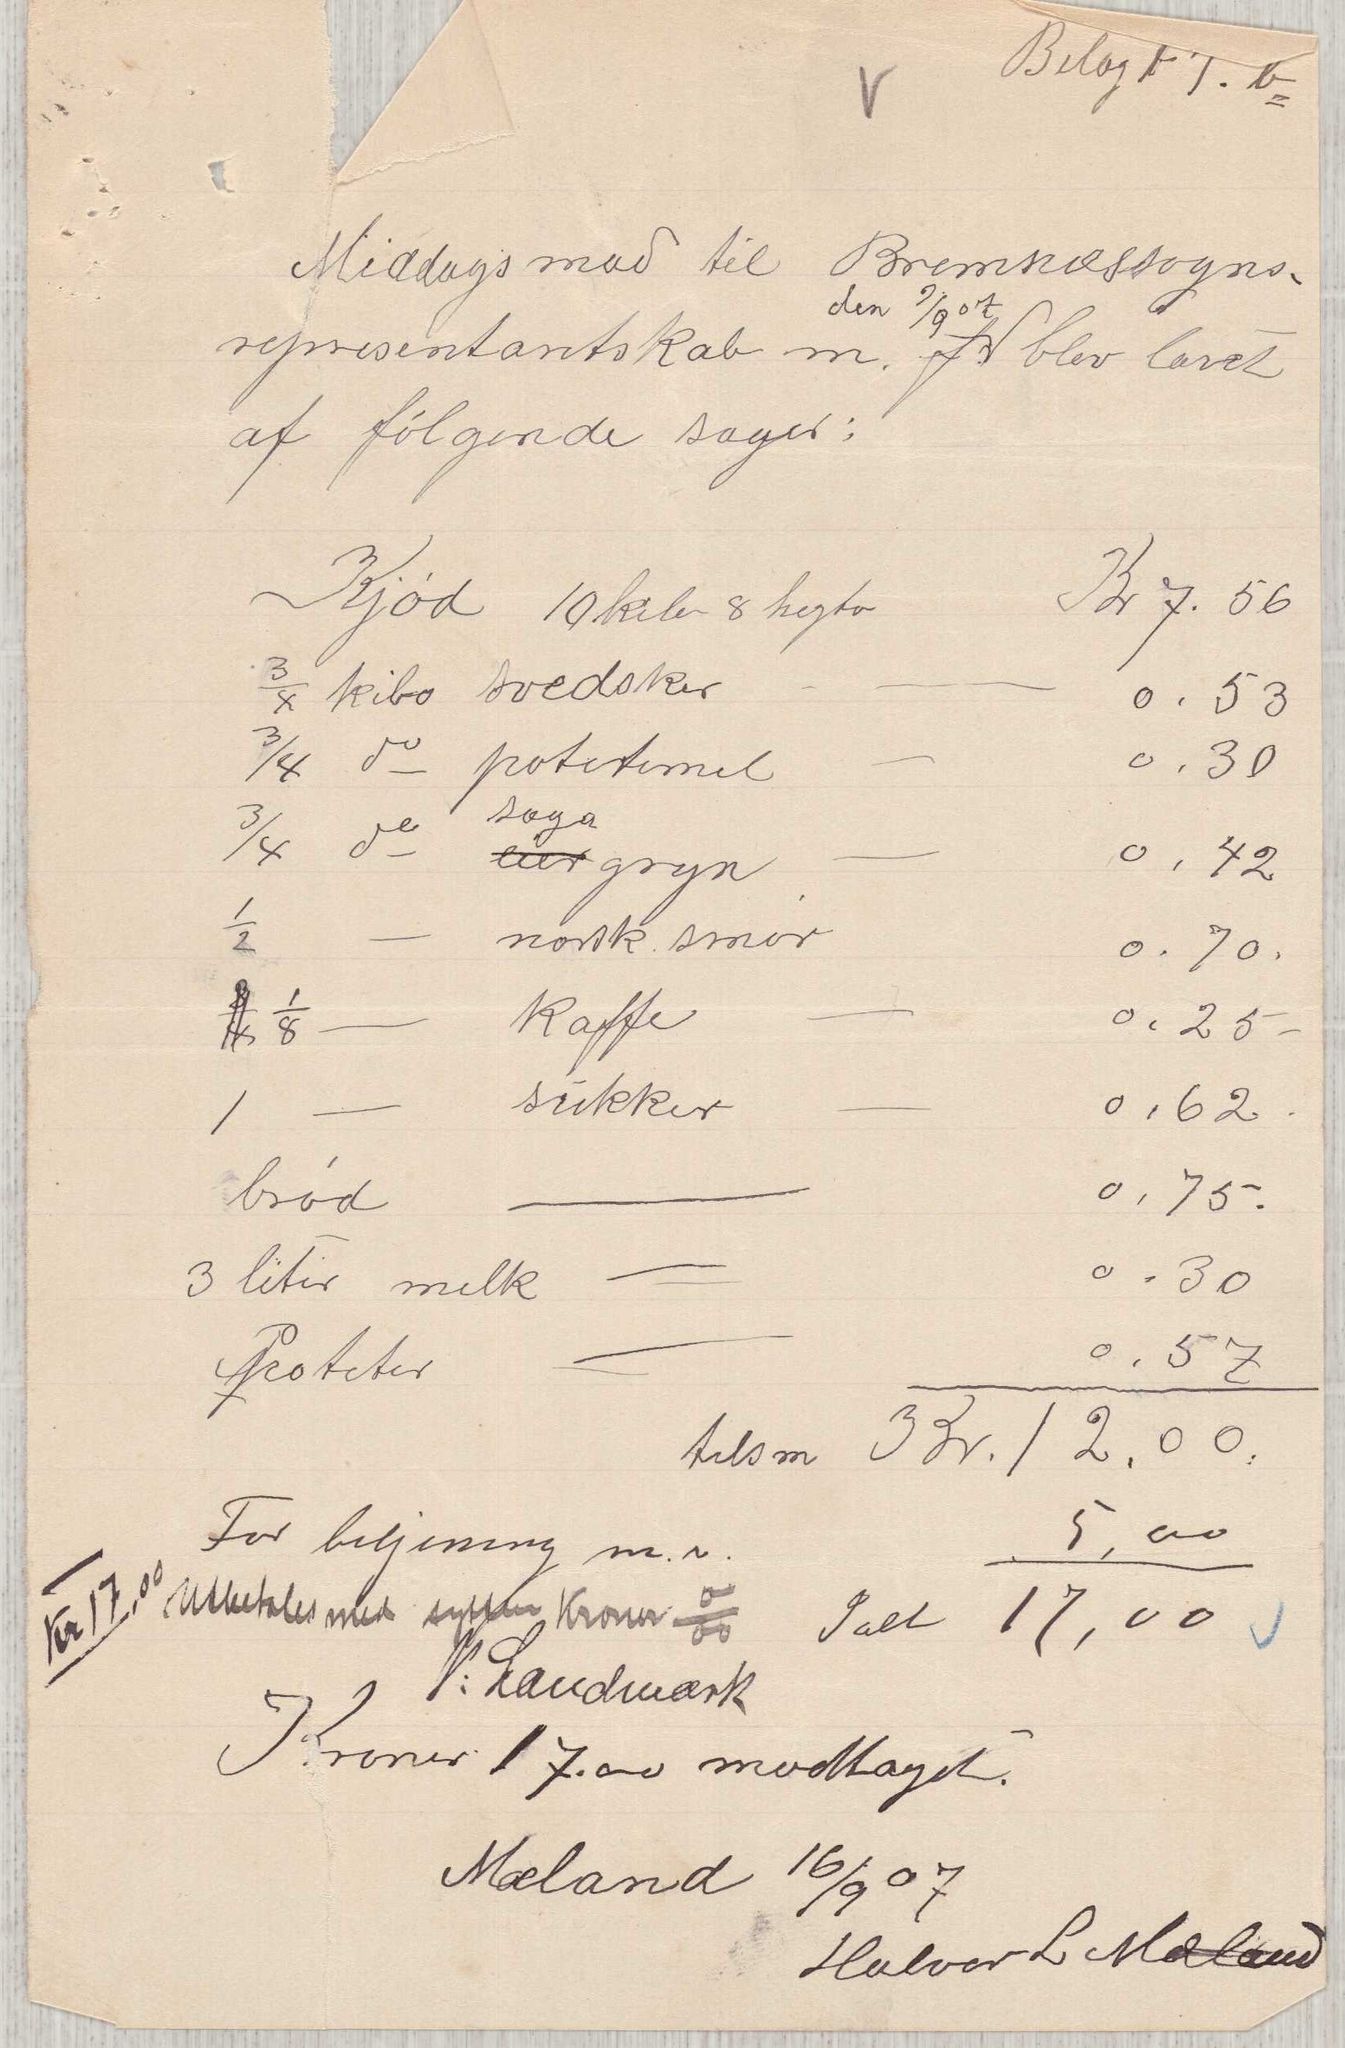 V
Belag 7. b
Middagsmad til Bremnæssogns-
den 9/9 07
representantskab m. fl blev lavet
af følgende sager:
Kjød 10 kilo 8 hegto Kr 7.56
3/4 kilo svedsker — 0.53
3/4 do potetemel — 0.30
saga
3/4 do gryn — 0.42
1/2 — norsk smør 0.70.
1/8 — Kaffe — 0.25-
1 — sukker — 0.62.
brød — 0.75.
3 liter melk — 0.30
Poteter — 0.57
tilsm Kr. 12.00.
For betjening m.v. 5,00
Kr 17,00
Udbetales med sytten Kroner
Ialt 17,00
Landmark
Kroner 17.00 modtaget.
Mæland 16/9 07
Halvor L Mæland